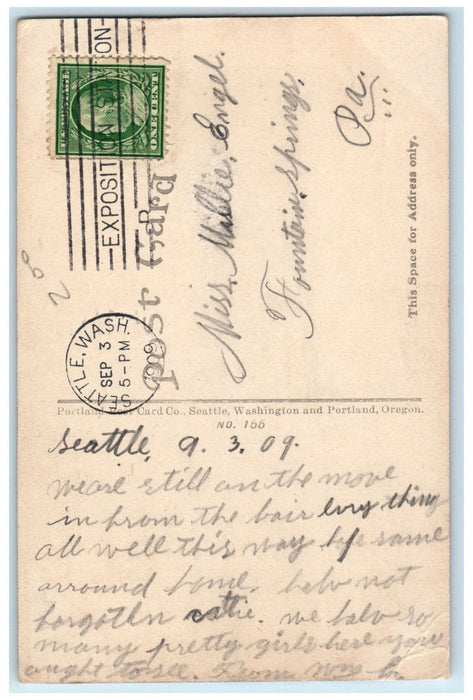 EXPOSITION STATION
ONE CENT
SEATTLE, WASH.
SEP 3
5-PM
1909
Post Card
Miss. Mallie. Engel.
Fountain Springs,
Pa.
This Space for Address only.
25
Portland Post Card Co., Seattle, Washington and Portland, Oregon.
NO. 166
Seattle, 9. 3. 09.
we are still on the move
in from the fair evry thing
all well this way hope same
arround home. have not
forgotten catie. we have so
many pretty girls here you
ought to see. From